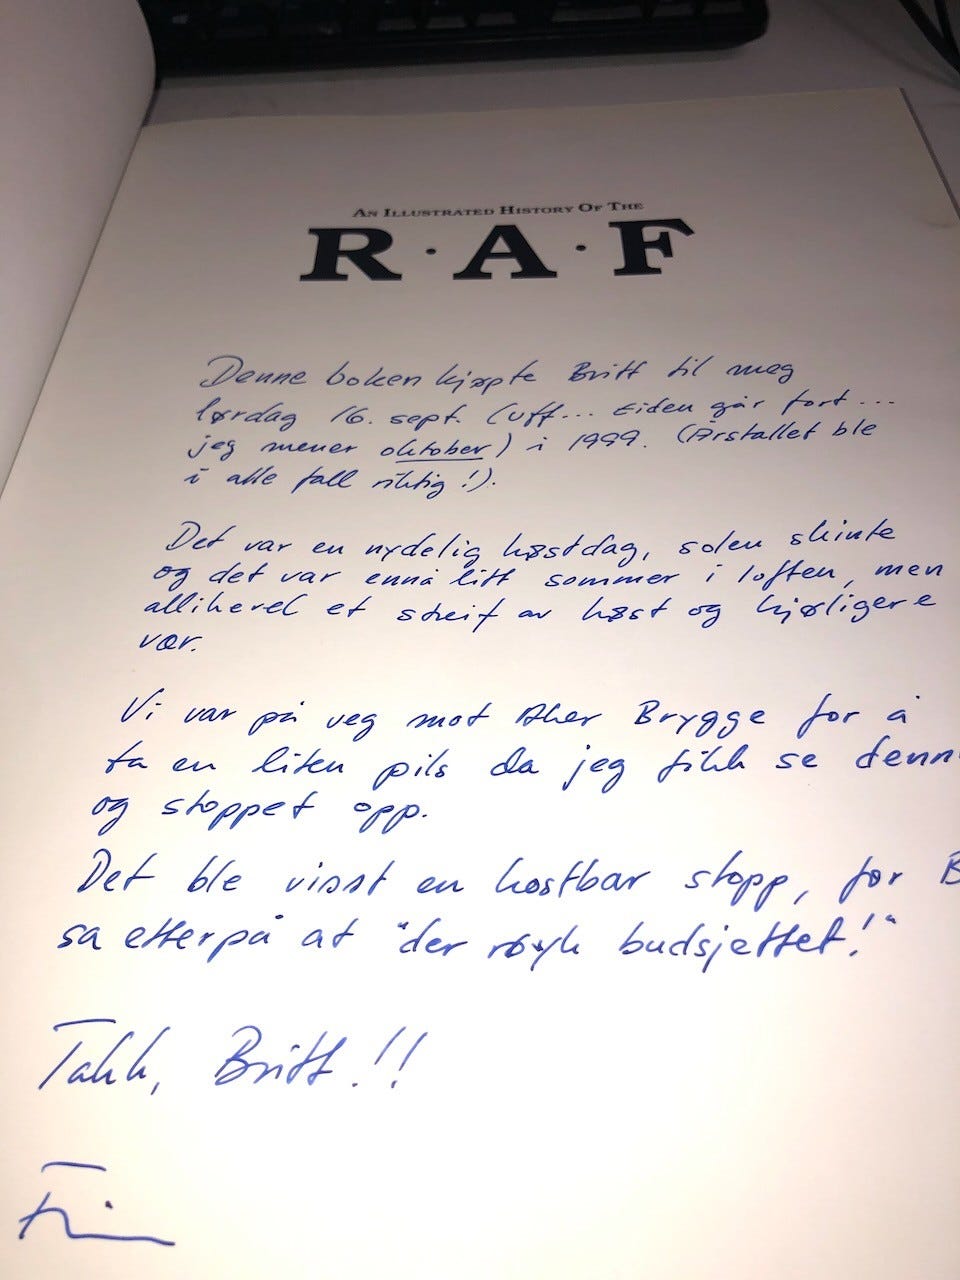 AN ILLUSTRATED HISTORY OF THE
R·A·F
Denne boken kjøpte Britt til meg
lørdag 16. sept. (Uff... tiden går fort...
jeg mener oktober) i 1999. (Årstallet ble
i alle fall riktig!).
Det var en nydelig høstdag, solen skinte
og det var ennå litt sommer i luften, men
allikevel et streif av høst og kjøligere
vær.
Vi var på veg mot Aker Brygge for å
ta en liten pils da jeg fikk se denn
og stoppet opp.
Det ble visst en kostbar stopp, for B
sa etterpå at "der røyk budsjettet!"
Takk, Britt!!